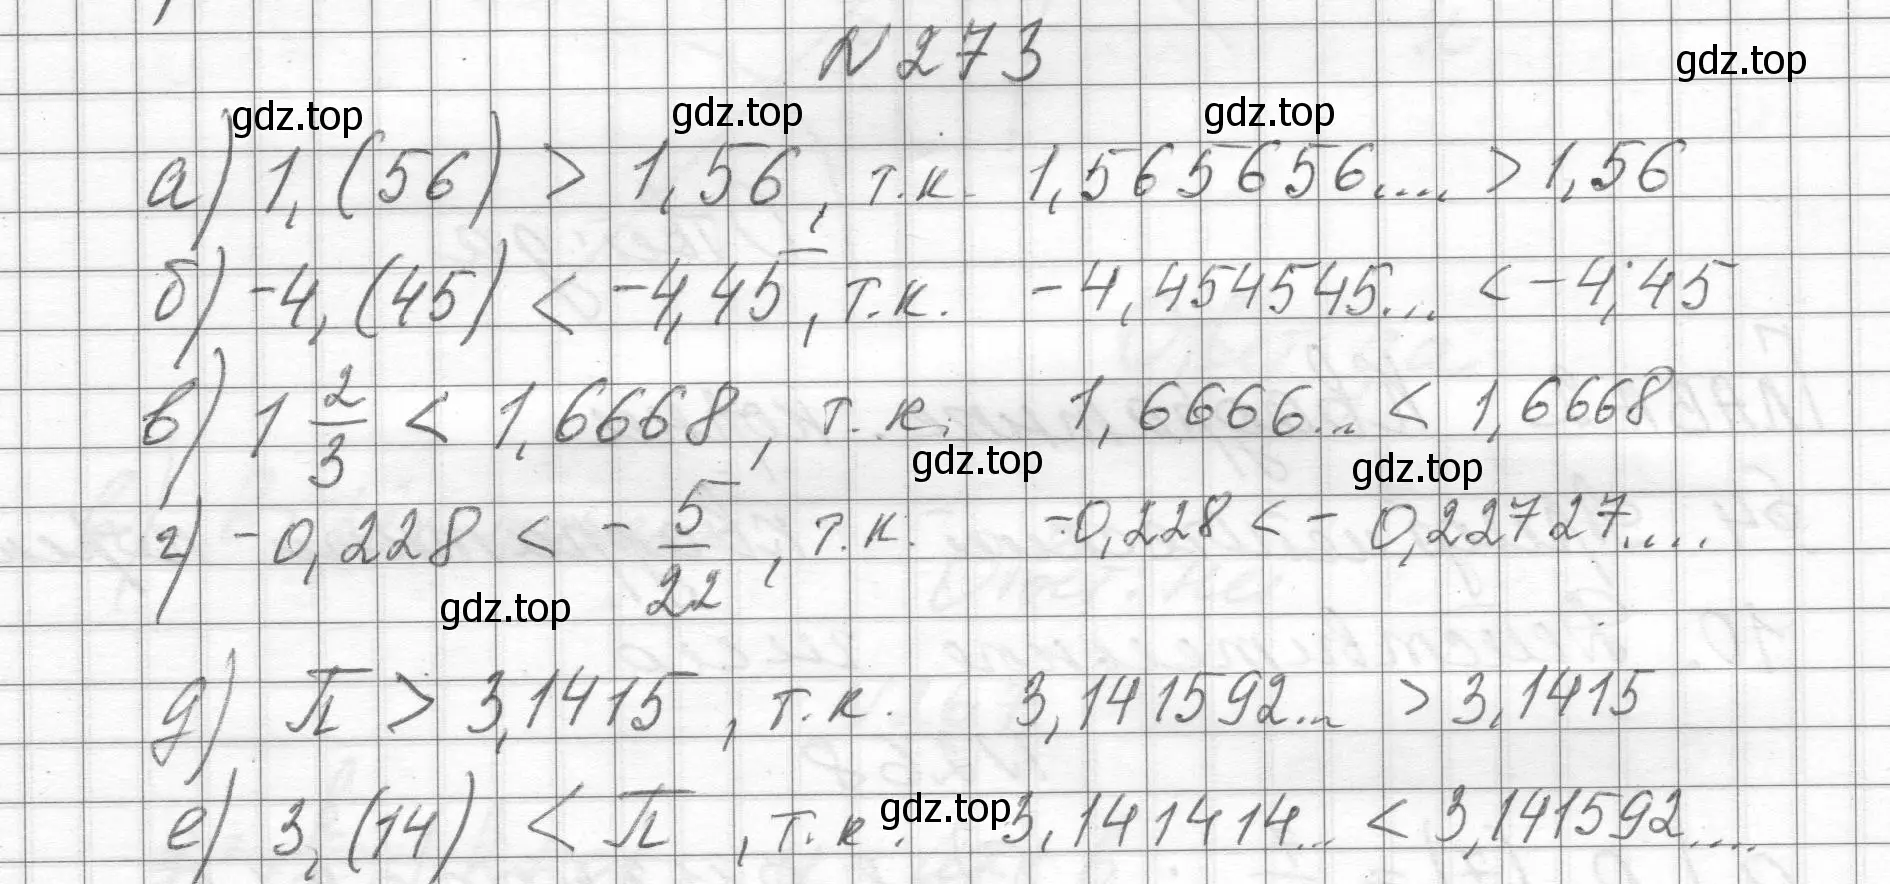 N 273
gdz.top
gdz.top gdz.top gdz.top
а) 1,(56) > 1,56, т.к. 1,565656.... > 1,56
б) -4,(45) < -4,45, т.к. -4,454545... < -4,45
в) 1 2/3 < 1,6668, т.к. 1,6666... < 1,6668
gdz.top gdz.top
г) -0,228 < - 5/22, т.к. -0,228 < - 0,22727....
gdz.top
д) π > 3,1415, т.к. 3,141592... > 3,1415
е) 3,(14) < π, т.к. 3,141414... < 3,141592....
gdz.top